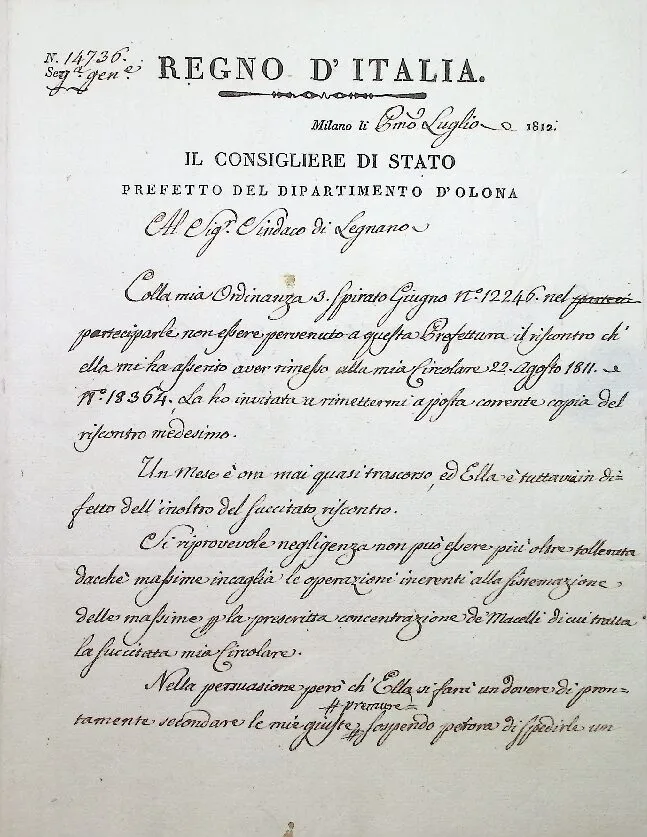 N. 14736.
Sezª. genᵉ.
REGNO D'ITALIA.
Milano li Pmo Luglio 1812.
IL CONSIGLIERE DI STATO
PREFETTO DEL DIPARTIMENTO D'OLONA
Al Sigʳ. Sindaco di Legnano
Colla mia Ordinanza 3. Spirato Giugno Nº. 12246. nel
parteciparle non essere pervenuto a questa Prefettura il riscontro ch'
ella mi ha asserito aver rimesso alla mia Circolare 22. Agosto 1811.
Nº. 18364. La ho invitata a rimettermi a posta corrente copia del
riscontro medesimo.
Un Mese è ora mai quasi trascorso, ed Ella è tuttavia in di=
fetto dell'inoltro del succitato riscontro.
Si riprovevole negligenza non può essere più oltre tollerata
dacchè massime incaglia le operazioni inerenti alla sistemazione
delle massime la prescritta concentrazione de' Macelli di cui tratta
la succitata mia Circolare.
Nella persuasione però ch'Ella si farà un dovere di pron=
premure=
tamente secondare le mie giuste sospendo petora di spedirle un